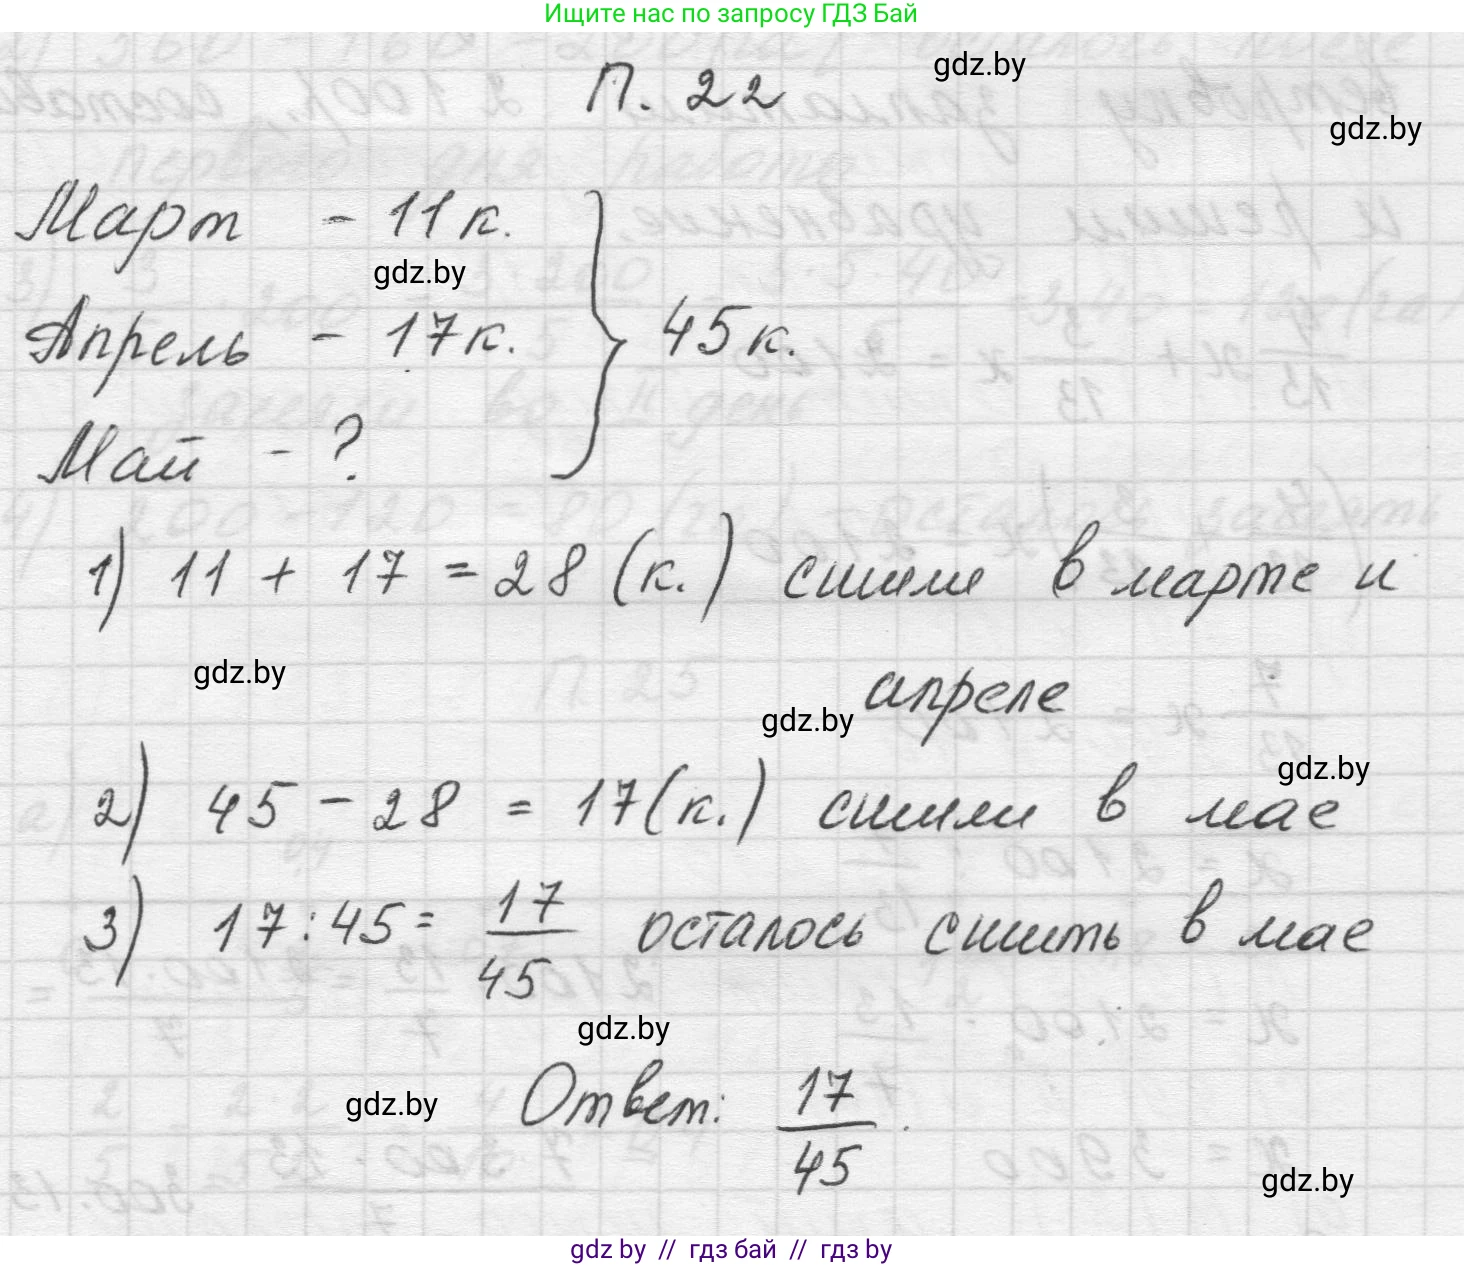 Ищите нас по запросу ГДЗ Бай
П. 22
gdz.by
gdz.by
Март - 11 к.
gdz.by
Апрель - 17 к. } 45 к.
Май - ?
1) 11 + 17 = 28 (к.) сшили в марте и
gdz.by
апреле
gdz.by
gdz.by
2) 45 - 28 = 17 (к.) сшили в мае
3) 17 : 45 = 17/45 осталось сшить в мае
gdz.by
gdz.by
Ответ: 17/45.
gdz.by
gdz by // гдз бай // гдз by